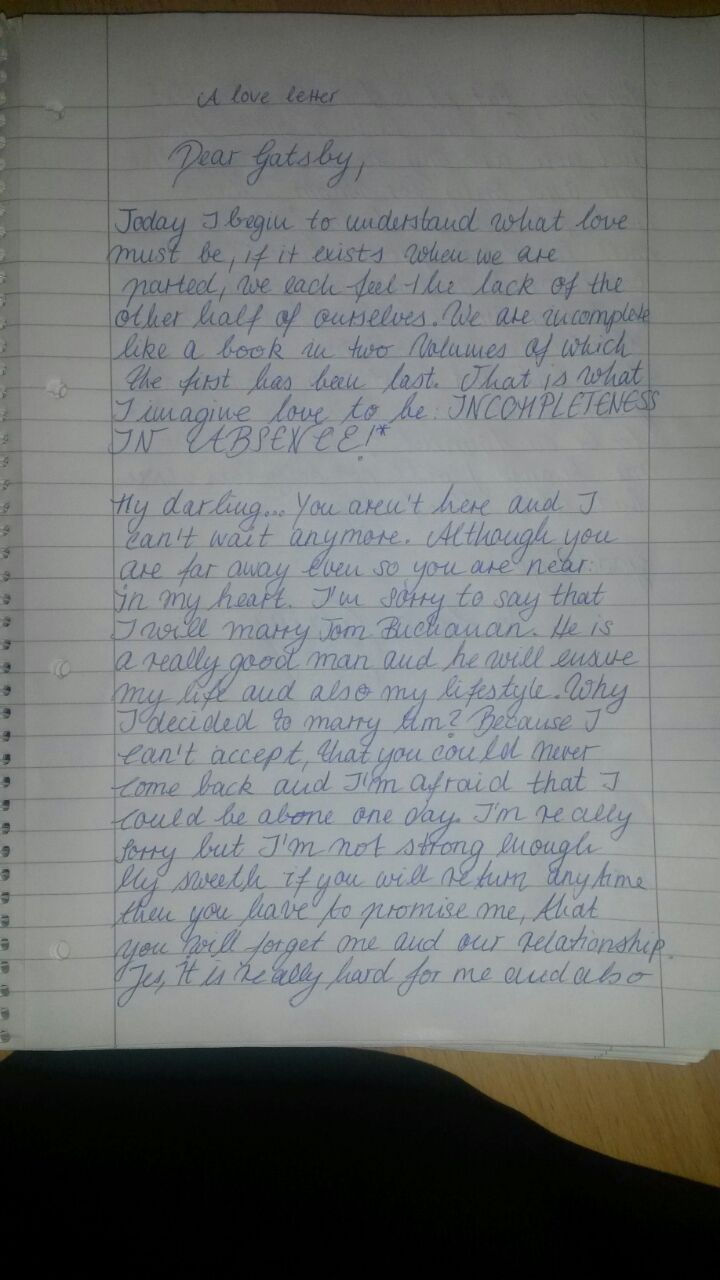 A love letter
Dear Gatsby,
Today I begin to understand what love
must be, if it exists when we are
parted, we each feel the lack of the
other half of ourselves. We are incomplete
like a book in two Volumes of which
the first has been lost. That is what
I imagine love to be: INCOMPLETENESS
IN ABSENCE!*
My darling... You aren't here and I
can't wait anymore. Although you
are far away even so you are near:
in my heart. I'm sorry to say that
I will marry Tom Buchanan. He is
a really good man and he will ensure
my life and also my lifestyle. Why
I decided to marry him? Because I
can't accept, that you could never
come back and I'm afraid that I
could be alone one day. I'm really
sorry but I'm not strong enough
My if you will return anytime
then you have to promise me, that
you will forget me and our relationship.
Yes, it is really hard for me and also